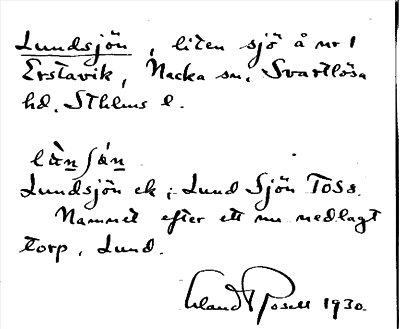 Lundsjön, liten sjö å nr 1
Erstavik, Nacka sn, Svartlösa
hd, Sthlms l.
làn ſán
Lundsjön ek; Lund Sjön TOSs.
Namnet efter ett nu nedlagt
torp, Lund.
Erland Rosell 1930.